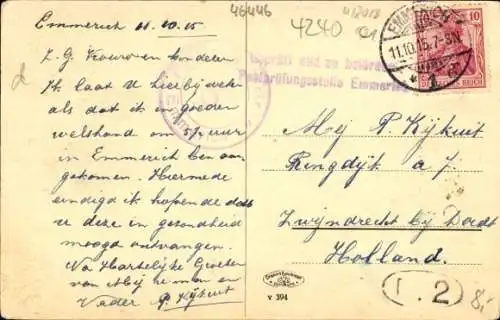 Emmerich 11.10.15
46446
4240
L.G. Vrouw en kinderen
Ik laat u hierbij weten
als dat ik in goeden
welstand om 5½ uur
in Emmerich ben aan
gekomen. Hiermede
eindig ik hopende dat
u deze in gezondheid
moogd ontvangen.
Na Hartelijke Groeten
van Mij uw man en
Vader P. Kijkuit
EMMERICH
11.10.15.7-8N.
10
DEUTSCHES REICH
Geprüft und zu befördern
Postprüfungsstelle Emmerich
Mej P. Kijkuit
Ringdijk a 7
Zwijndrecht bij Dordt
Holland.
V 394
1.2
8,-